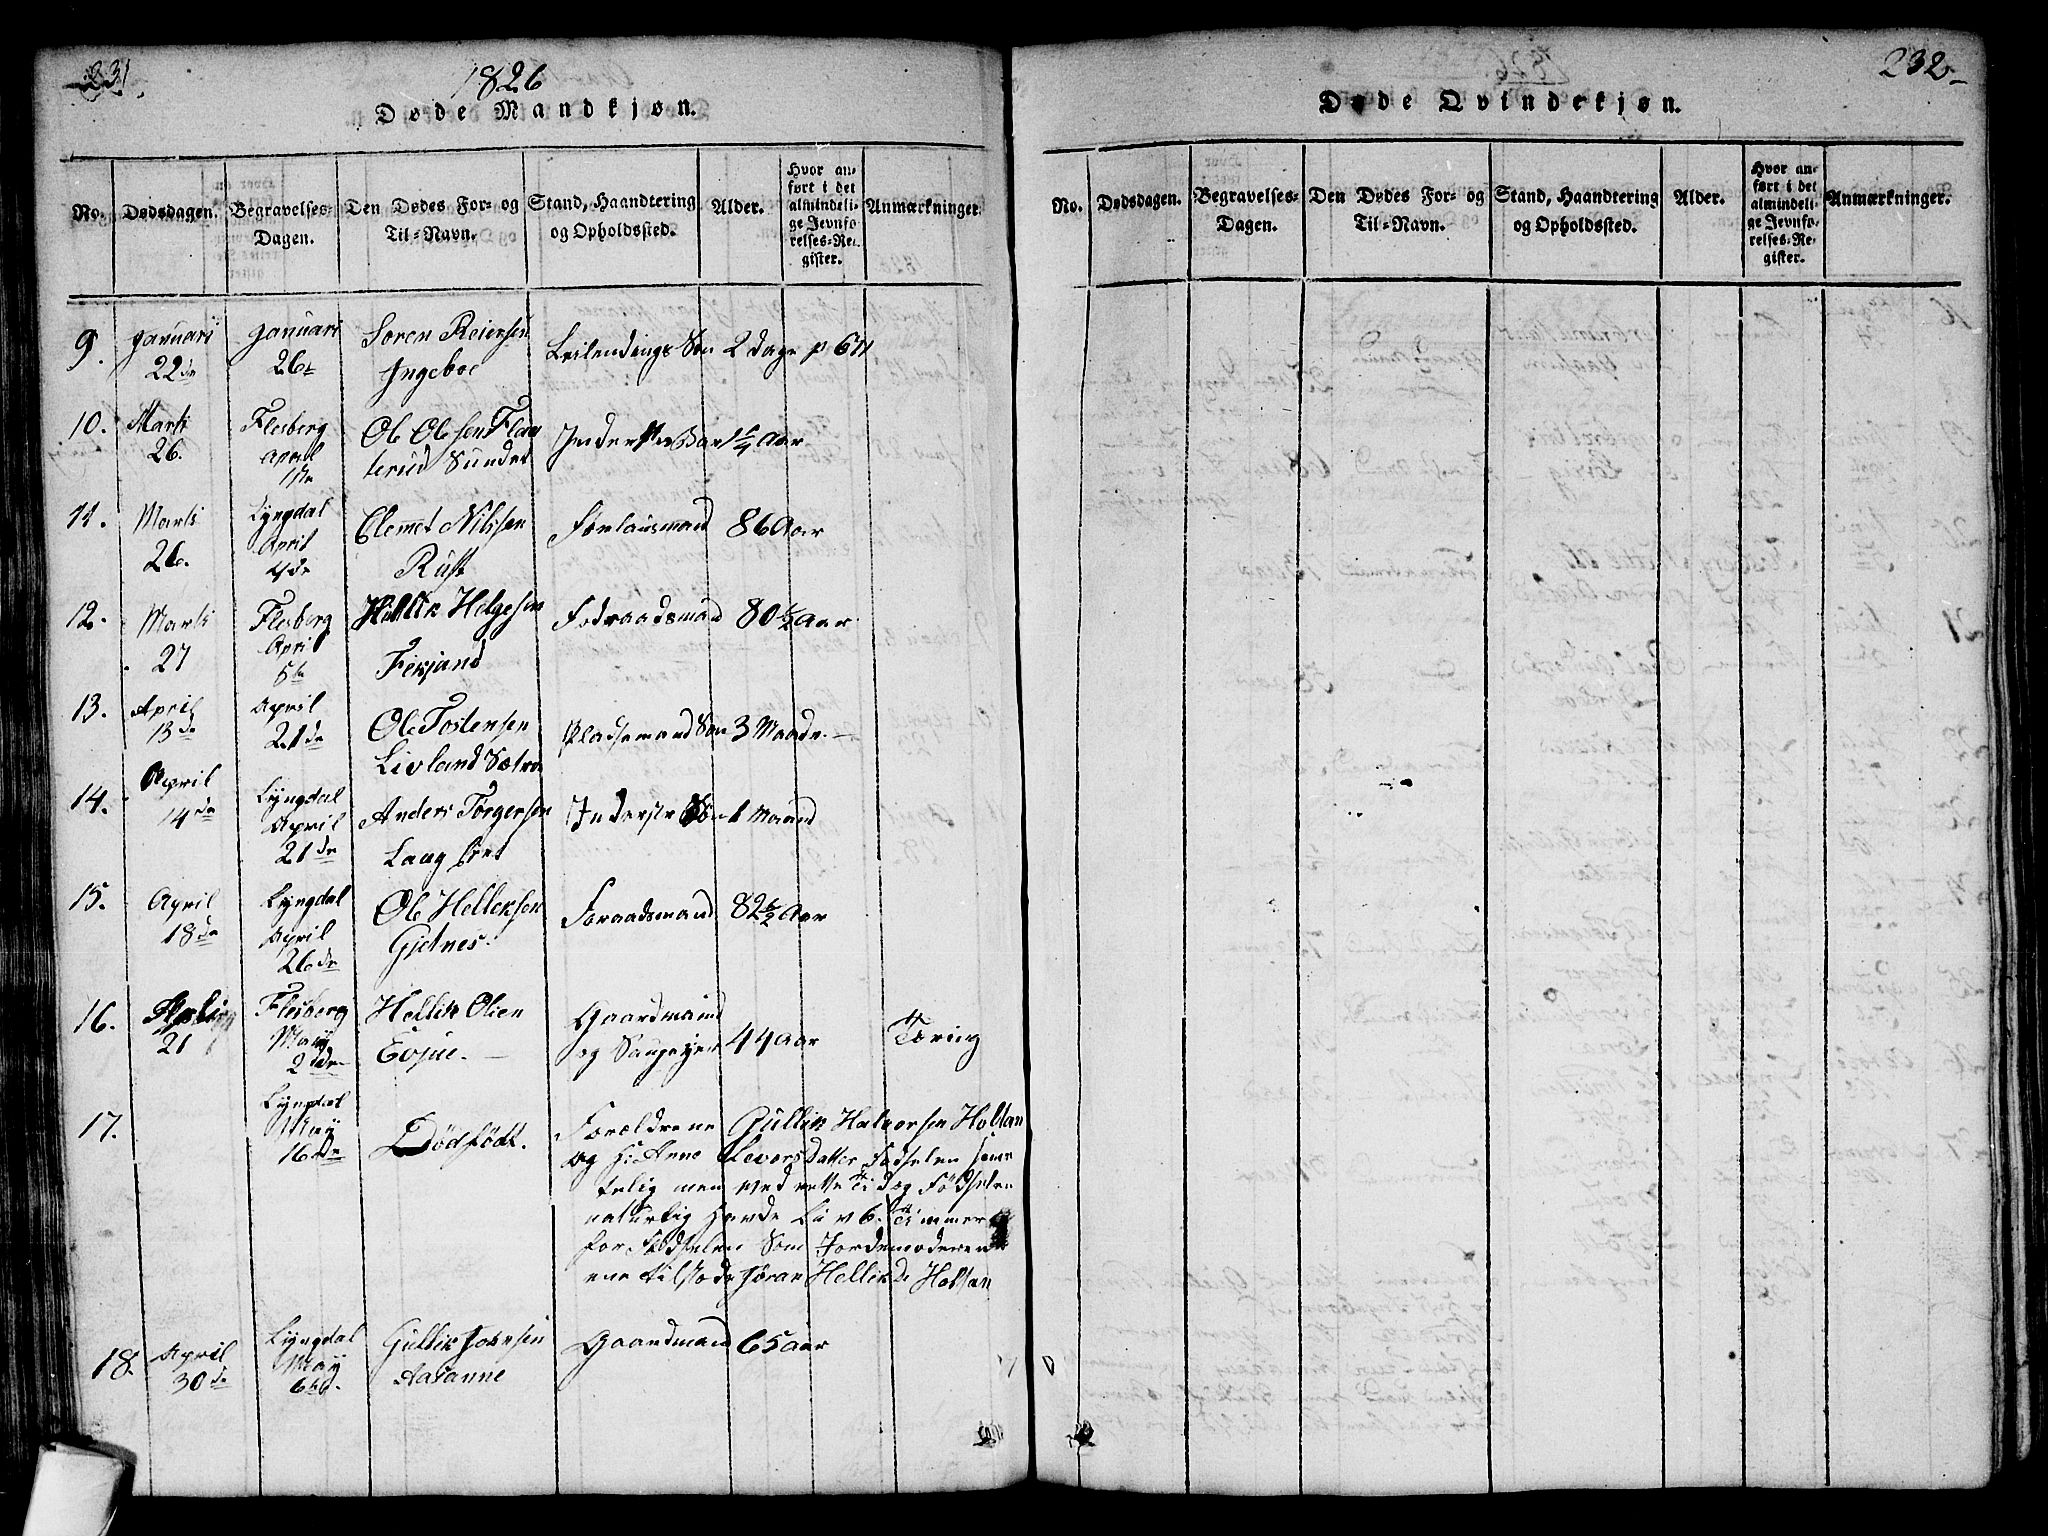 231
1826
Døde Mandkjøn.
No.
Dødsdagen.
Begravelses-
Dagen.
Den Dødes For- og
Til-Navn.
Stand, Haandtering
og Opholdssted.
Alder.
Hvor an-
ført i det
almindeli-
ge Jevnfø-
relses-Re-
gister.
Anmærkninger.
9.
Januari
22de
Januari
26de
Soren Reiersen
Ingeboe
Leilendings Søn
2 dage
p 671
10.
Marts
26.
Flesberg
April
1ste
Ole Olsen Flaa
terud Sundet
Inderster Bar
1 1/4 Aar
11.
Marts
26.
Lyngdal
April
4de
Clemet Nilssen
Rust
86 Aar
12.
Marts
27
Flesberg
April
5te
Hellik Helgesen
Feksand
Fodraadsmand
80 1/2 Aar
13.
April
13de
April
21de
Ole Tostensen
Livland Sætra
Pladsemand Søn
3 Maade.
14.
April
14de
Lyngdal
April
21de
Anders Torgersen
Inderste Søn
1 Maand
15.
April
18de
Lyngdal
April
26de
Ole Helleksen
Gjetnes.
Foraadsmand
82 1/2 Aar
16.
April
21
Flesberg
May
2de
Hellik Olsen
Evjue.
Gaardmand
og
44 Aar
Tæring
17.
Lyngdal
May
16de
Dødfødt.
Foreldrene Gullik Halvorsen Holtan
og Anne Sieversdatter Fødselen
men ved rette Tid og Fødselen
naturlig havde Liv 6. Timmer
for Fødselen Som Jordemoderen
Hellik
18.
April
30de
Lyngdal
May
6te
Gullik Johnsen
Aasanne
Gaardmand
65 aar
232
Døde Qvindekjøn.
No.
Dødsdagen.
Begravelses-
Dagen.
Den Dødes For- og
Til-Navn.
Stand, Haandtering
og Opholdssted.
Alder.
Hvor an-
ført i det
almindeli-
ge Jevnfø-
relses-Re-
gister.
Anmærkninger.